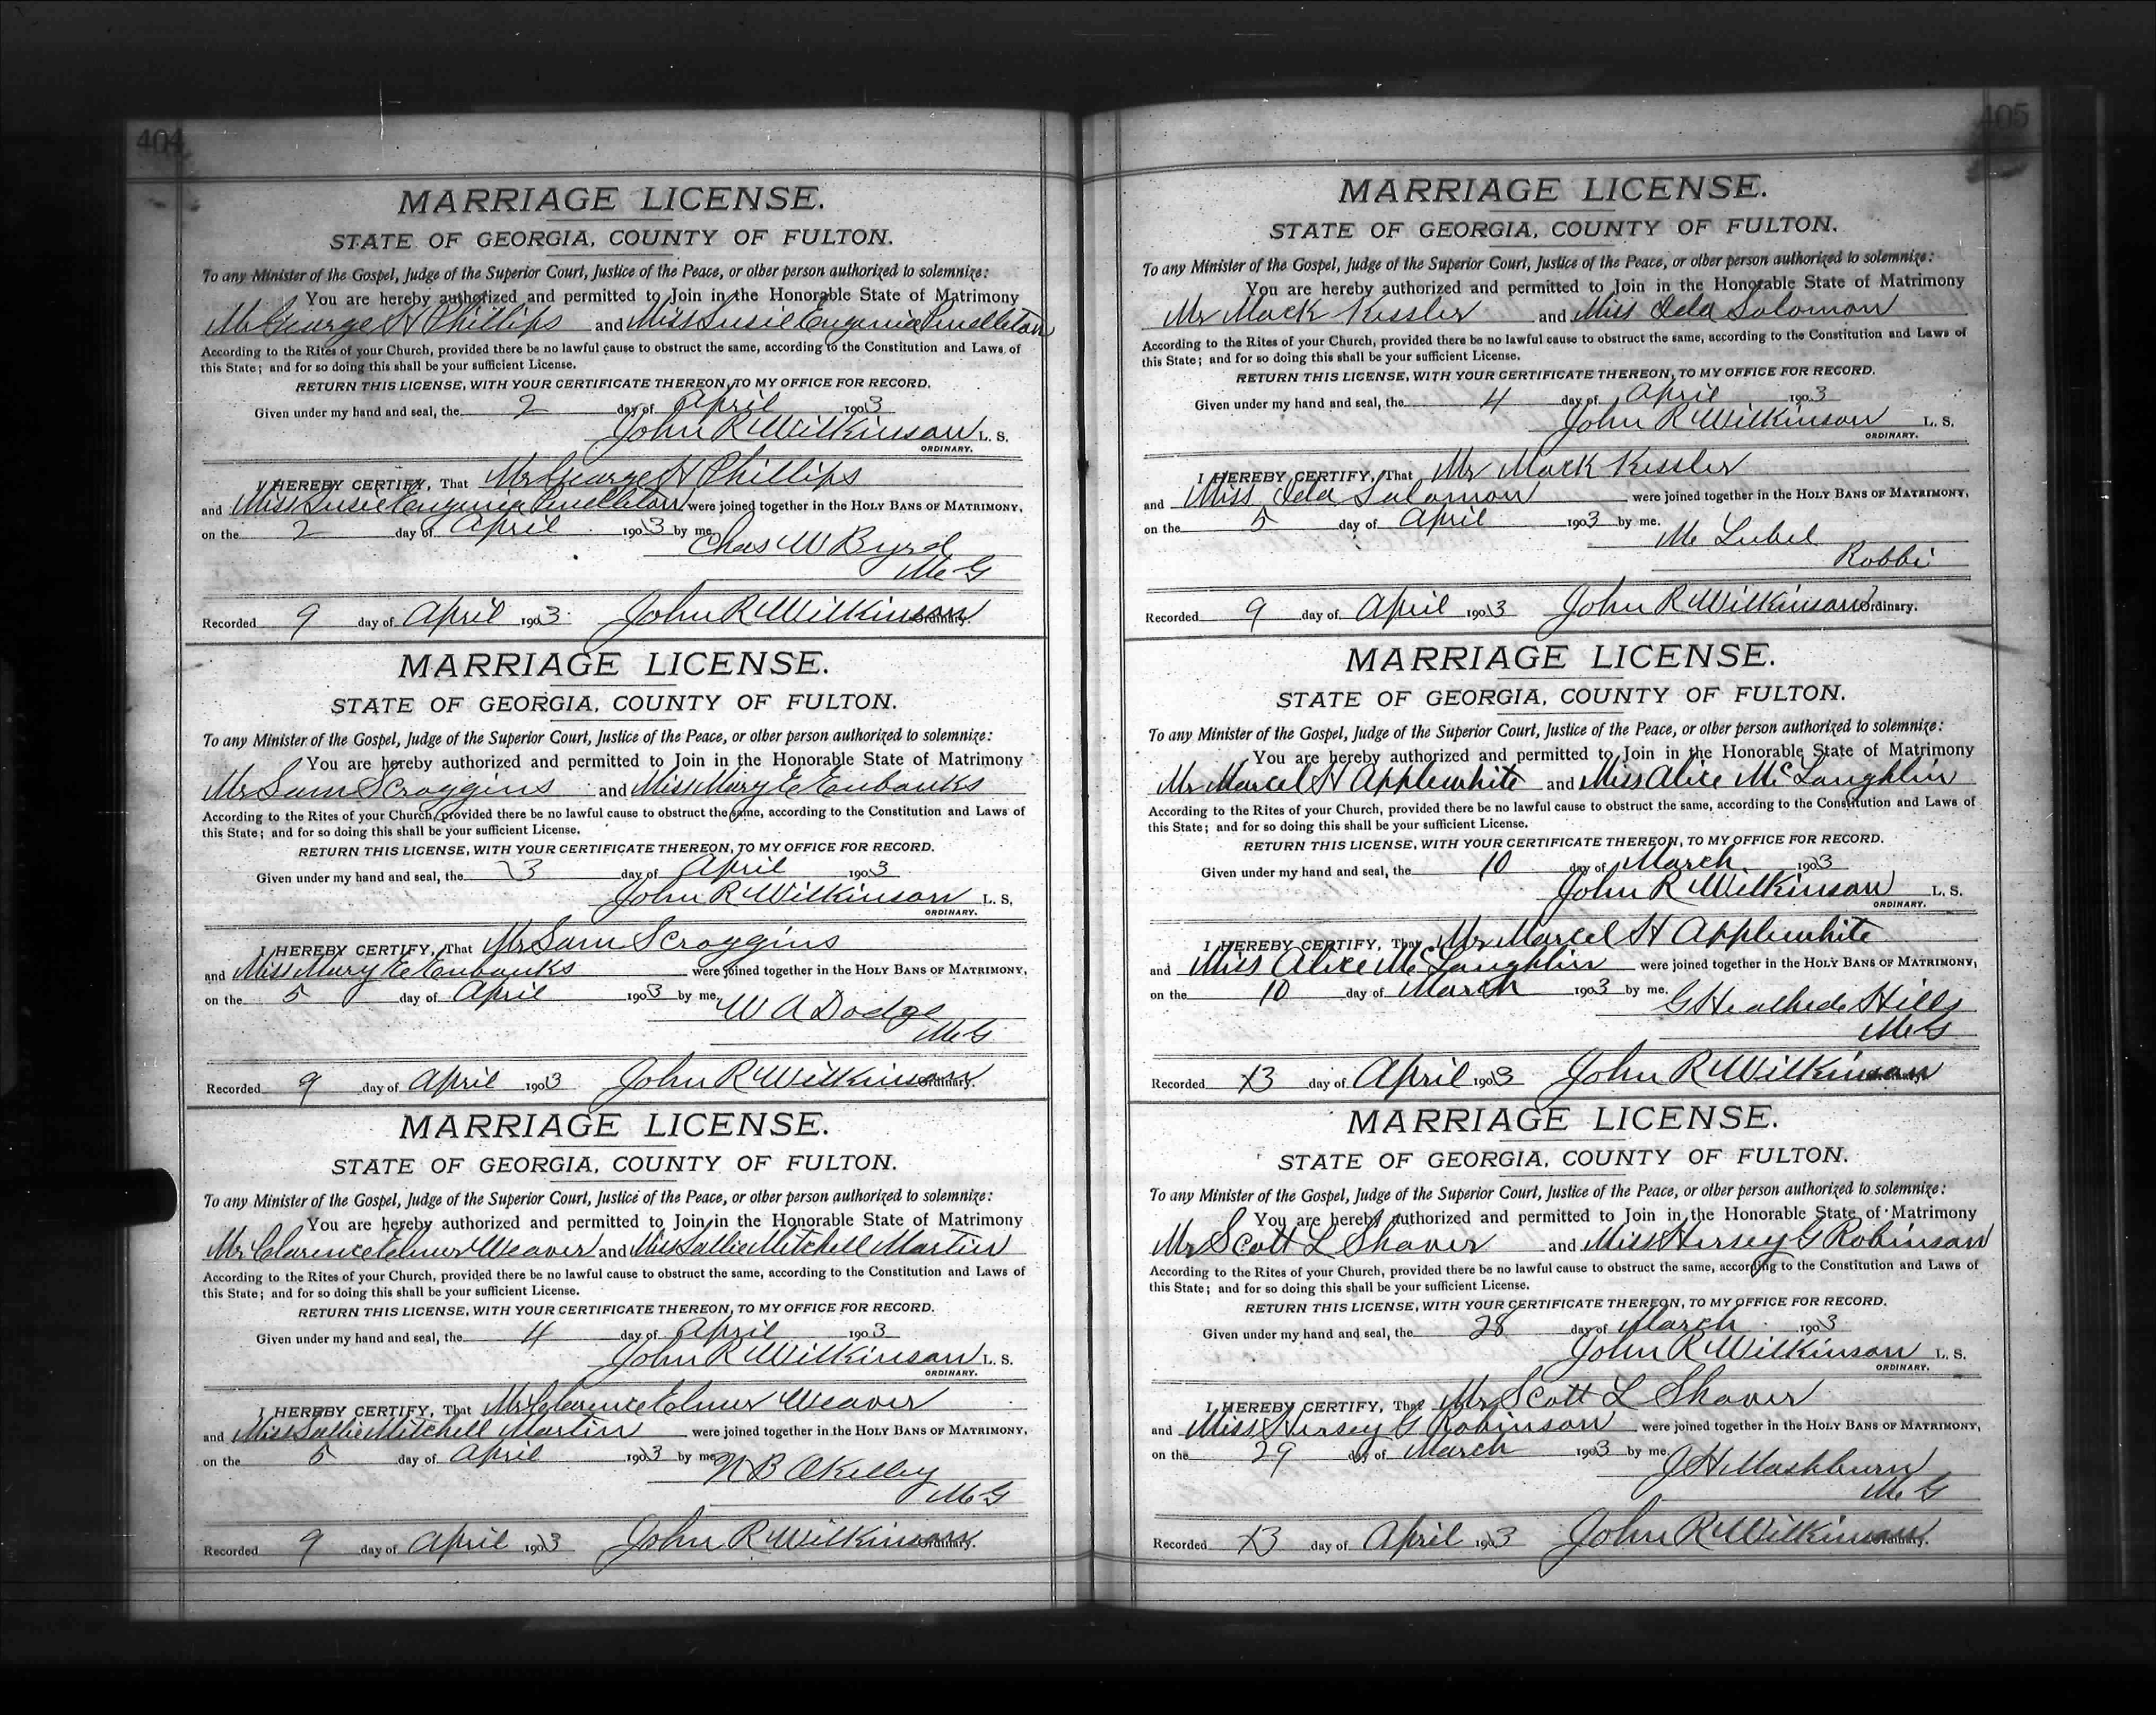 404
MARRIAGE LICENSE.
STATE OF GEORGIA, COUNTY OF FULTON.
To any Minister of the Gospel, Judge of the Superior Court, Justice of the Peace, or other person authorized to solemnize:
You are hereby authorized and permitted to Join in the Honorable State of Matrimony
Mr George H Phillips and Miss Susie Eugenia Pendleton
According to the Rites of your Church, provided there be no lawful cause to obstruct the same, according to the Constitution and Laws of
this State; and for so doing this shall be your sufficient License.
RETURN THIS LICENSE, WITH YOUR CERTIFICATE THEREON, TO MY OFFICE FOR RECORD.
Given under my hand and seal, the 2 day of April 1903
John R Wilkinson L. S.
ORDINARY.
I HEREBY CERTIFY, That Mr George H Phillips
and Miss Susie Eugenia Pendleton were joined together in the HOLY BANS OF MATRIMONY,
on the 2 day of April 1903 by me.
Chas W Byrd
M G
Recorded 9 day of April 1903 John R Wilkinson Ordinary.
MARRIAGE LICENSE.
STATE OF GEORGIA, COUNTY OF FULTON.
To any Minister of the Gospel, Judge of the Superior Court, Justice of the Peace, or other person authorized to solemnize:
You are hereby authorized and permitted to Join in the Honorable State of Matrimony
Mr Sam Scroggins and Miss Mary E Eubanks
According to the Rites of your Church, provided there be no lawful cause to obstruct the same, according to the Constitution and Laws of
this State; and for so doing this shall be your sufficient License.
RETURN THIS LICENSE, WITH YOUR CERTIFICATE THEREON, TO MY OFFICE FOR RECORD.
Given under my hand and seal, the 3 day of April 1903
John R Wilkinson L. S.
ORDINARY.
I HEREBY CERTIFY, That Mr Sam Scroggins
and Miss Mary E Eubanks were joined together in the HOLY BANS OF MATRIMONY,
on the 5 day of April 1903 by me.
W A Dodge
M G
Recorded 9 day of April 1903 John R Wilkinson Ordinary.
MARRIAGE LICENSE.
STATE OF GEORGIA, COUNTY OF FULTON.
To any Minister of the Gospel, Judge of the Superior Court, Justice of the Peace, or other person authorized to solemnize:
You are hereby authorized and permitted to Join in the Honorable State of Matrimony
Mr Clarence Elmer Weaver and Miss Sallie Mitchell Martin
According to the Rites of your Church, provided there be no lawful cause to obstruct the same, according to the Constitution and Laws of
this State; and for so doing this shall be your sufficient License.
RETURN THIS LICENSE, WITH YOUR CERTIFICATE THEREON, TO MY OFFICE FOR RECORD.
Given under my hand and seal, the 4 day of April 1903
John R Wilkinson L. S.
ORDINARY.
I HEREBY CERTIFY, That Mr Clarence Elmer Weaver
and Miss Sallie Mitchell Martin were joined together in the HOLY BANS OF MATRIMONY,
on the 5 day of April 1903 by me.
N B OKelley
M G
Recorded 9 day of April 1903 John R Wilkinson Ordinary.
405
MARRIAGE LICENSE.
STATE OF GEORGIA, COUNTY OF FULTON.
To any Minister of the Gospel, Judge of the Superior Court, Justice of the Peace, or other person authorized to solemnize:
You are hereby authorized and permitted to Join in the Honorable State of Matrimony
Mr Mack Kessler and Miss Ida Solomon
According to the Rites of your Church, provided there be no lawful cause to obstruct the same, according to the Constitution and Laws of
this State; and for so doing this shall be your sufficient License.
RETURN THIS LICENSE, WITH YOUR CERTIFICATE THEREON, TO MY OFFICE FOR RECORD.
Given under my hand and seal, the 4 day of April 1903
John R Wilkinson L. S.
ORDINARY.
I HEREBY CERTIFY, That Mr Mack Kessler
and Miss Ida Solomon were joined together in the HOLY BANS OF MATRIMONY,
on the 5 day of April 1903 by me.
M
Rabbi
Recorded 9 day of April 1903 John R Wilkinson Ordinary.
MARRIAGE LICENSE.
STATE OF GEORGIA, COUNTY OF FULTON.
To any Minister of the Gospel, Judge of the Superior Court, Justice of the Peace, or other person authorized to solemnize:
You are hereby authorized and permitted to Join in the Honorable State of Matrimony
Mr Marcel H Applewhite and Miss Alice McLaughlin
According to the Rites of your Church, provided there be no lawful cause to obstruct the same, according to the Constitution and Laws of
this State; and for so doing this shall be your sufficient License.
RETURN THIS LICENSE, WITH YOUR CERTIFICATE THEREON, TO MY OFFICE FOR RECORD.
Given under my hand and seal, the 10 day of March 1903
John R Wilkinson L. S.
ORDINARY.
I HEREBY CERTIFY, That Mr Marcel H Applewhite
and Miss Alice McLaughlin were joined together in the HOLY BANS OF MATRIMONY,
on the 10 day of March 1903 by me.
G Hills
M G
Recorded 13 day of April 1903 John R Wilkinson Ordinary.
MARRIAGE LICENSE.
STATE OF GEORGIA, COUNTY OF FULTON.
To any Minister of the Gospel, Judge of the Superior Court, Justice of the Peace, or other person authorized to solemnize:
You are hereby authorized and permitted to Join in the Honorable State of Matrimony
Mr Scott L Shaver and Miss Hersey G Robinson
According to the Rites of your Church, provided there be no lawful cause to obstruct the same, according to the Constitution and Laws of
this State; and for so doing this shall be your sufficient License.
RETURN THIS LICENSE, WITH YOUR CERTIFICATE THEREON, TO MY OFFICE FOR RECORD.
Given under my hand and seal, the 28 day of March 1903
John R Wilkinson L. S.
ORDINARY.
I HEREBY CERTIFY, That Mr Scott L Shaver
and Miss Hersey G Robinson were joined together in the HOLY BANS OF MATRIMONY,
on the 29 day of March 1903 by me.
J H Mashburn
M G
Recorded 13 day of April 1903 John R Wilkinson Ordinary.